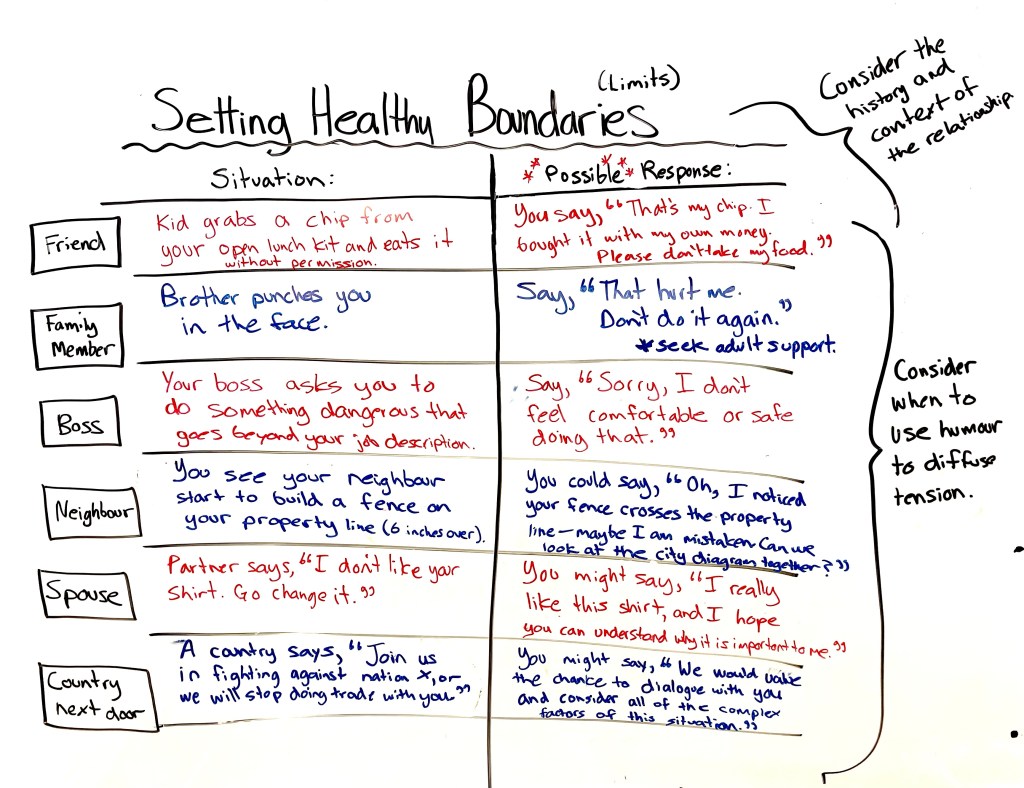 (Limits)
Setting Healthy Boundaries
Consider the
history and
context of
the relationship
Situation:
** Possible ** Response:
Friend
Kid grabs a chip from
your open lunch kit and eats it
without permission.
You say, "That's my chip. I
bought it with my own money.
Please don't take my food."
Family
Member
Brother punches you
in the face.
Say, "That hurt me.
Don't do it again."
*seek adult support.
Boss
Your boss asks you to
do something dangerous that
goes beyond your job description.
Say, "Sorry, I don't
feel comfortable or safe
doing that."
Neighbour
You see your neighbour
start to build a fence on
your property line (6 inches over).
You could say, "Oh, I noticed
your fence crosses the property
line - maybe I am mistaken. Can we
look at the city diagram together?"
Spouse
Partner says, "I don't like your
shirt. Go change it."
You might say, "I really
like this shirt, and I hope
you can understand why it is important to me."
Country
next door
A country says, "Join us
in fighting against nation X, or
we will stop doing trade with you."
You might say, "We would value
the chance to dialogue with you
and consider all of the complex
factors of this situation."
Consider
when to
use humour
to diffuse
tension.